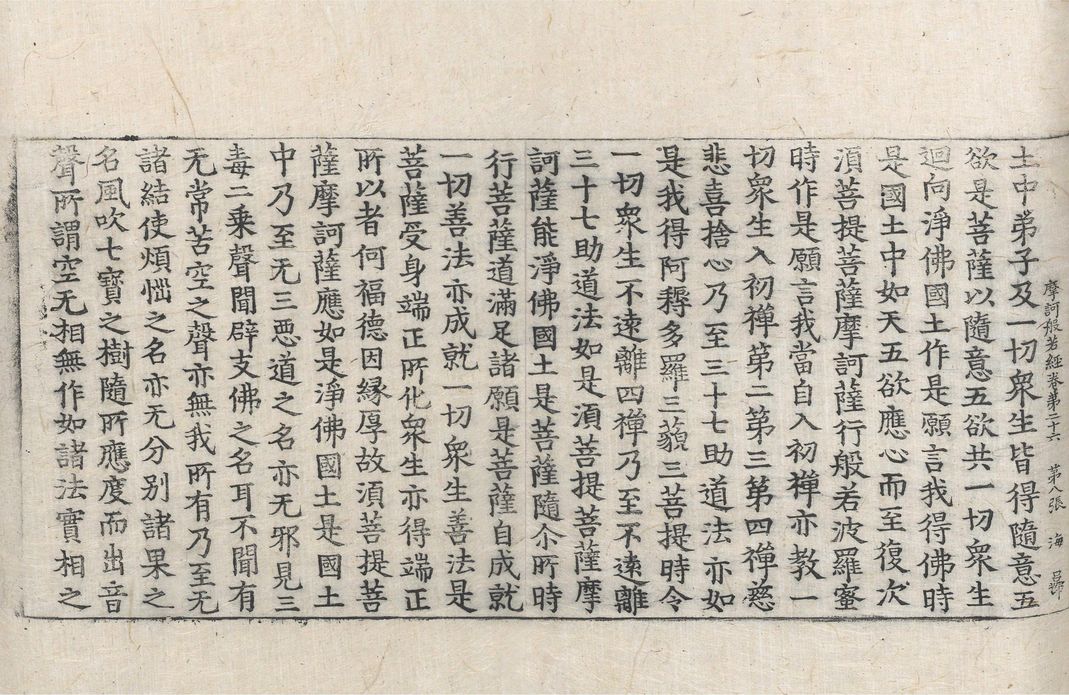 摩訶般若經卷第二十六 第八張 海 㬚
土中弟子及一切衆生皆得隨意五
欲是菩薩以隨意五欲共一切衆生
迴向淨佛國土作是願言我得佛時
是國土中如天五欲應心而至復次
湏菩提菩薩摩訶薩行般若波羅蜜
時作是願言我當自入初禪亦教一
切衆生入初禪第二第三第四禪慈
悲喜捨心乃至三十七助道法亦如
是我得阿耨多羅三藐三菩提時令
一切衆生不遠離四禪乃至不遠離
三十七助道法如是湏菩提菩薩摩
訶薩能淨佛國土是菩薩隨尒所時
行菩薩道滿足諸願是菩薩自成就
一切善法亦成就一切衆生善法是
菩薩受身端正所化衆生亦得端正
所以者何福德因緣厚故湏菩提菩
薩摩訶薩應如是淨佛國土是國土
中乃至无三惡道之名亦无邪見三
毒二乘聲聞辟支佛之名耳不聞有
无常苦空之聲亦無我所有乃至无
諸結使煩惱之名亦无分別諸果之
名風吹七寶之樹隨所應度而出音
聲所謂空无相無作如諸法實相之